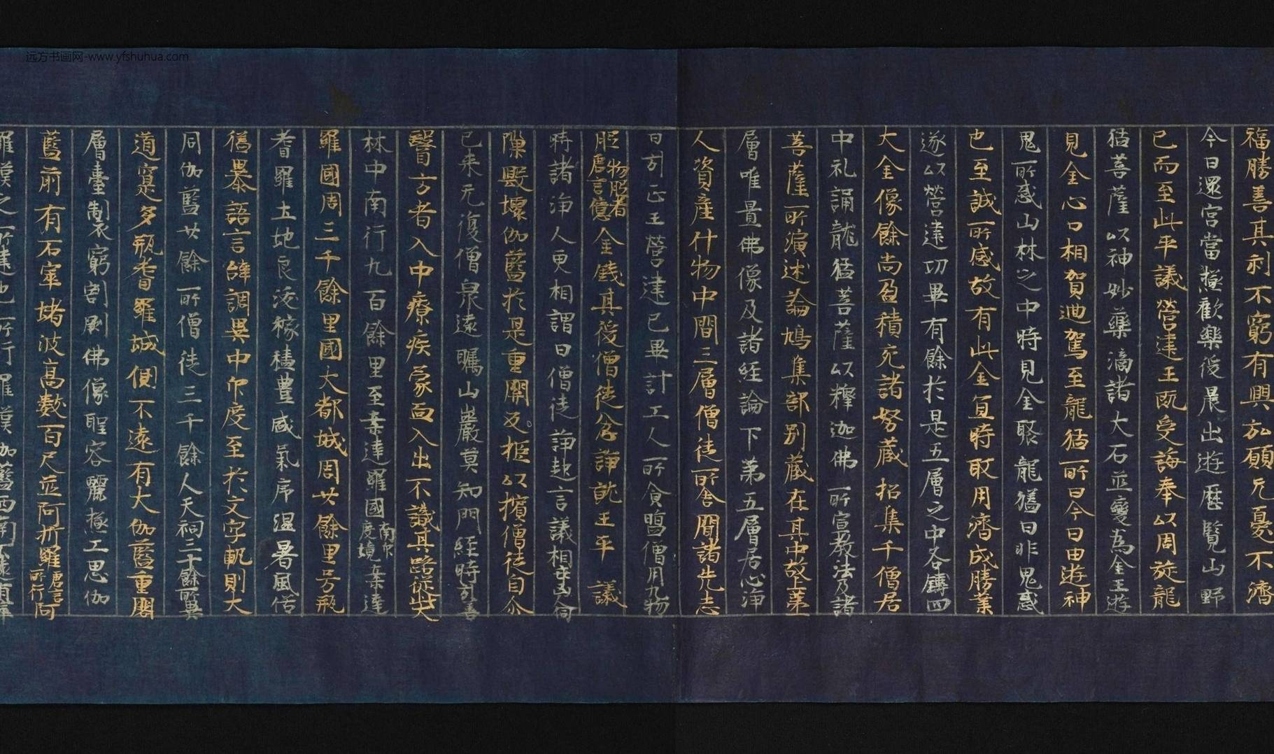 福勝善其利不窮有興弘願无憂不濟
今日還宮當極歡樂後晨出遊歷覽山野
已而至此平議營建王既受誨奉以周旋龍
猛菩薩以神妙藥滴諸大石並變為金王遊
見金心口相賀迴駕至龍猛所曰今日畋遊神
鬼所惑山林之中時見金聚龍猛曰非鬼惑
也至誠所感故有此金宜時取用濟成勝業
遂以營建功畢有餘於是五層之中各鑄四
大金像餘尚盈積充諸帑藏招集千僧居
中礼誦龍猛菩薩以釋迦佛所宣教法及諸
菩薩所演述論鳩集部別藏在其中故第一
層唯置佛像及諸經論下第五層居止淨
人資產什物中間三層僧徒所舍聞諸先志
曰引正王營建已畢計工人所食鹽價用九
拘胝拘胝者唐言億金錢其後僧徒忿諍就王平議
時諸淨人更相謂曰僧徒諍起言議相乖凶伺
隙毀壞伽藍於是重關反拒以擯僧徒自介
已来无復僧衆遠矚山巖莫知門徑時引善
醫方者入中療疾蒙面入出不識其路從此
林中南行九百餘里至案達羅國南印度境案達
羅國周三千餘里國大都城周廿餘里号瓶
耆羅土地良沃稼穡豐盛氣序温暑風俗
猛暴語言辭調異中印度至於文字軌則大
同伽藍廿餘所僧徒三千餘人天祠三十餘所異
道寔多瓶耆羅城側不遠有大伽藍重閣
層臺製窮剞劂佛像聖容麗極工思伽
藍前有石窣堵波高數百尺並阿折羅唐言所行阿
羅漢之所建也所行羅漢伽藍西南不遠有窣
远方书画网-www.yfshuhua.com